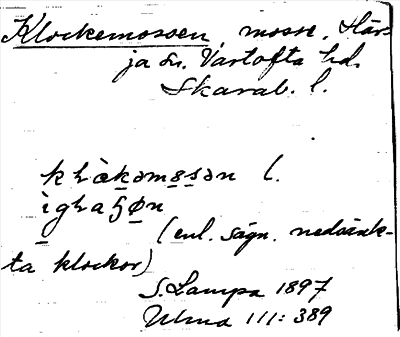 Klockemossen, mosse, Här-
ja sn. Vartofta hd.
Skarab. l.
klåkəmosən l.
ighaɧøn
(enl. sägn. nedsänk-
ta klockor)
S. Lampa 1897
Ulma III: 389